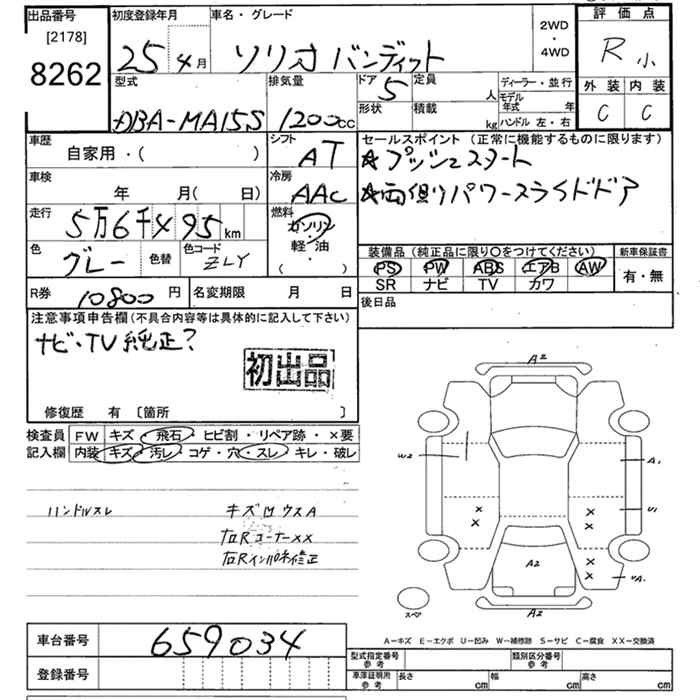 出品番号
[2178]
8262
初度登録年月
25 4月
車名・グレード
ソリオ バンディット
2WD
・
4WD
評価点
R 小
外装 内装
C C
型式
DBA-MA15S
排気量
1200cc
ドア
5
定員
人
形状
積載
kg
ディーラー・並行
モデル年式 年
ハンドル 左・右
車歴
自家用・( )
シフト
AT
車検
年 月( 日)
冷房
AAC
走行
5万6千495km
燃料
ガソリン
・
軽油
( )
色
グレー
色替
色コード
ZLY
セールスポイント(正常に機能するものに限ります)
☆プッシュスタート
☆両側パワースライドドア
装備品(純正品に限り○をつけてください)
PS PW ABS エアB AW
SR ナビ TV カワ
新車保証書
有・無
R券 10800円
名変期限 月 日
後日品
注意事項申告欄(不具合内容等は具体的に記入して下さい)
ナビ・TV純正?
初出品
修復歴 有 〔箇所 〕
検査員
記入欄
FW キズ・飛石・ヒビ割・リペア跡・×要
内装 キズ・汚レ・コゲ・穴・スレ・キレ・破レ
ハンドルスレ
キズ凹ウスA
右Rコーナー××
右Rインパネ修正
A2
W2
A1
U1
A2
A2
スペア
A-キズ E-エクボ U-凹み W-補修跡 S-サビ C-腐食 XX-交換済
車台番号 659034
登録番号
型式指定番号
参考
類別区分番号
参考
車庫証明用
参考
長さ cm
幅 cm
高さ cm